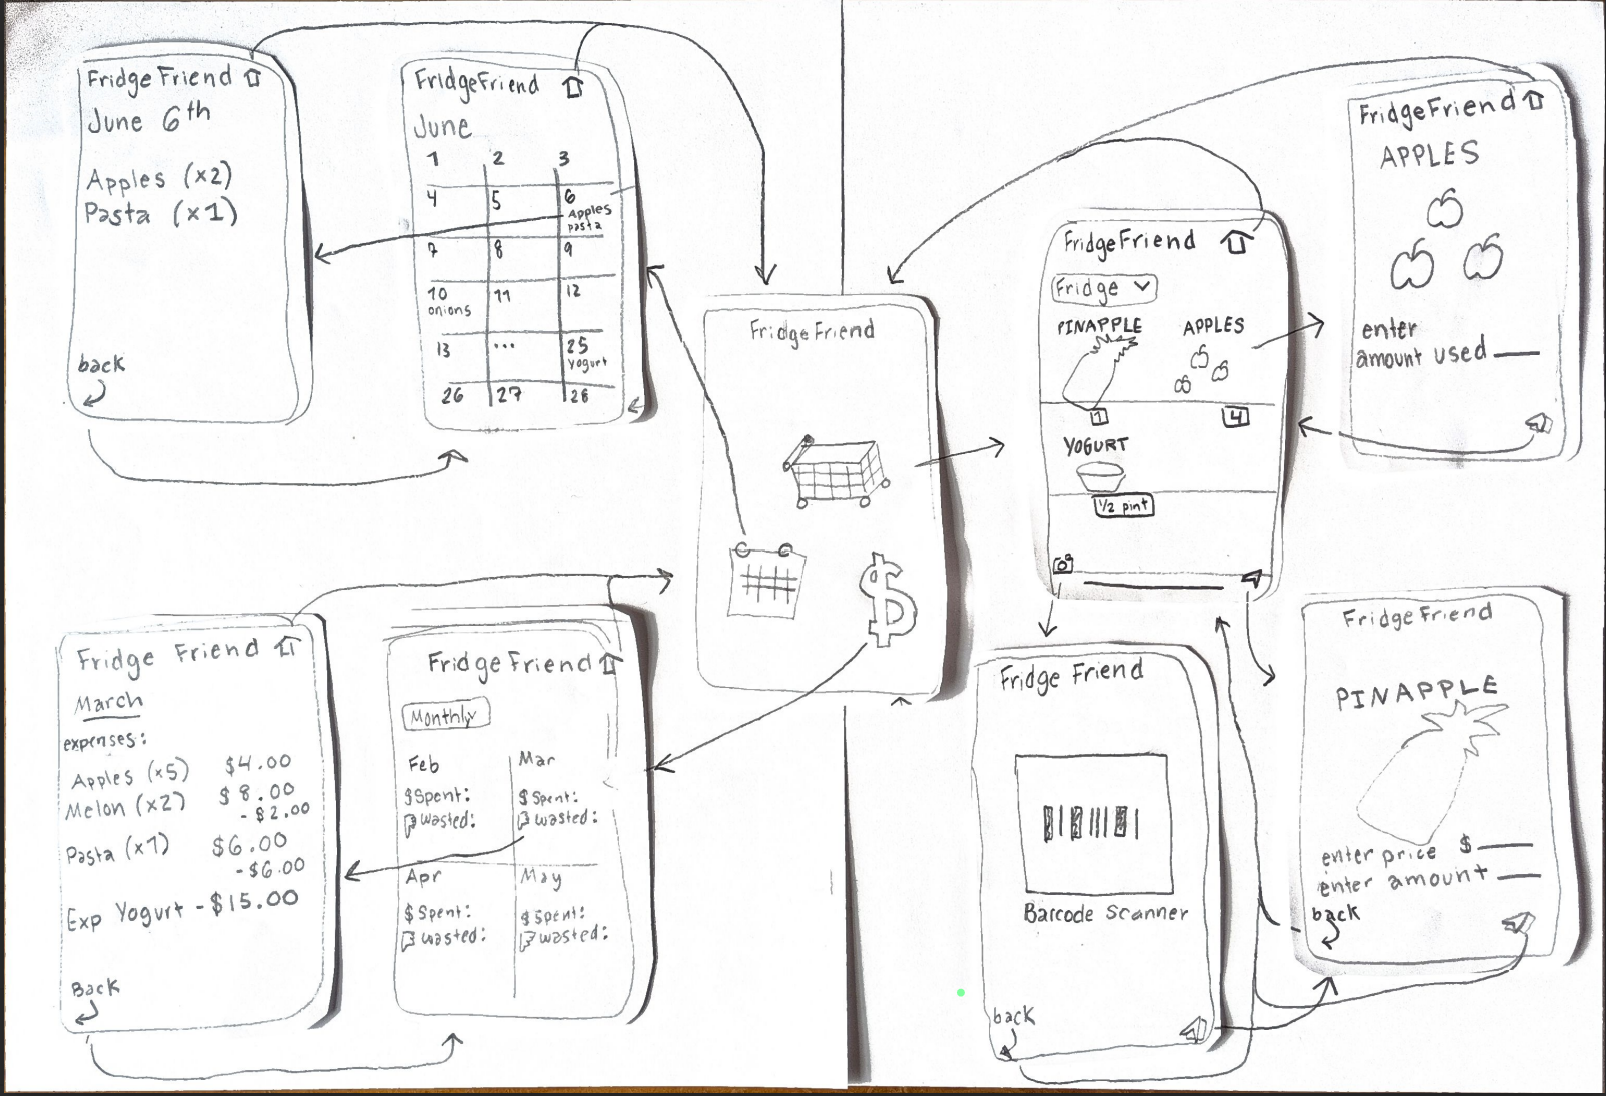 FridgeFriend
June 6th
Apples (x2)
Pasta (x1)
back
FridgeFriend
June
1 2 3
4 5 6
Apples
pasta
7 8 9
10 11 12
onions
13 ... 25
Yogurt
26 27 28
FridgeFriend
$
FridgeFriend
Fridge
PINAPPLE APPLES
1 4
YOGURT
1/2 pint
FridgeFriend
APPLES
enter
amount used
Fridge Friend
March
expenses:
Apples (x5) $4.00
Melon (x2) $8.00
- $2.00
Pasta (x1) $6.00
- $6.00
Exp Yogurt - $15.00
Back
Fridge Friend
Monthly
Feb Mar
$ Spent: $ Spent:
wasted: wasted:
Apr May
$ Spent: $ Spent:
wasted: wasted:
Fridge Friend
Barcode Scanner
back
FridgeFriend
PINAPPLE
enter price $
enter amount
back